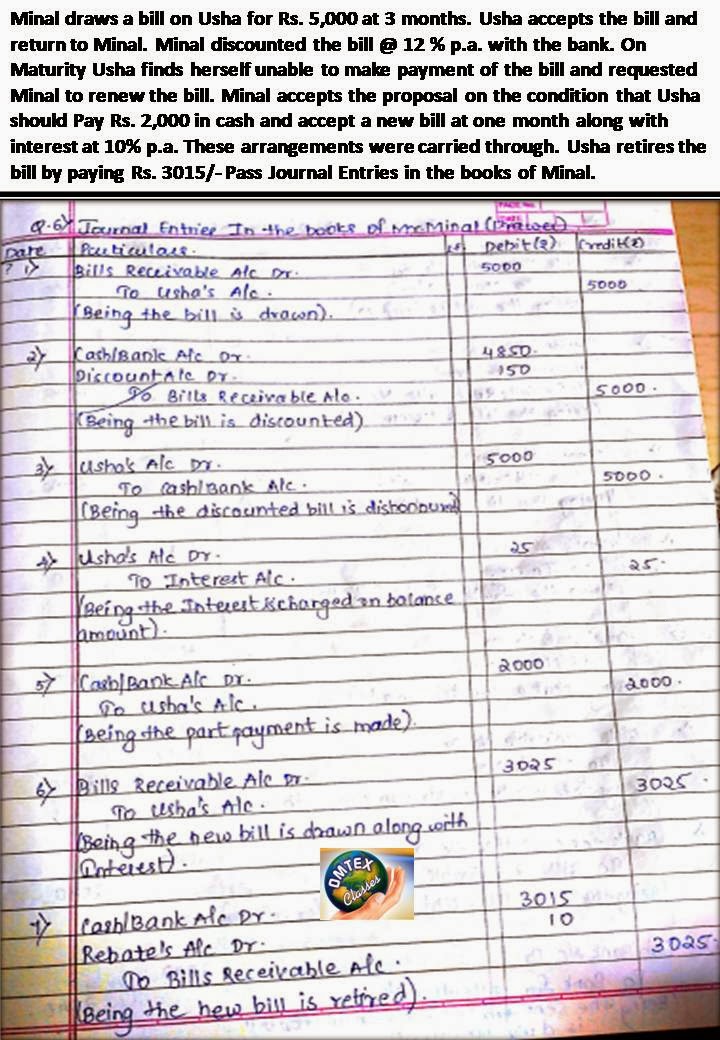 Minal draws a bill on Usha for Rs. 5,000 at 3 months. Usha accepts the bill and
return to Minal. Minal discounted the bill @ 12 % p.a. with the bank. On
Maturity Usha finds herself unable to make payment of the bill and requested
Minal to renew the bill. Minal accepts the proposal on the condition that Usha
should Pay Rs. 2,000 in cash and accept a new bill at one month along with
interest at 10% p.a. These arrangements were carried through. Usha retires the
bill by paying Rs. 3015/- Pass Journal Entries in the books of Minal.
Q.6) Journal Entries In the books of Minal (Drawer)
Date Particulars. Debit(₹) Credit(₹)
? 1) Bills Receivable A/c Dr. 5000
To Usha's A/c. 5000
(Being the bill is drawn).
2) Cash/Bank A/c Dr. 4850.
Discount A/c Dr. 150
To Bills Receivable A/c. 5000.
(Being the bill is discounted)
3) Usha's A/c Dr. 5000
To Cash/Bank A/c. 5000.
(Being the discounted bill is dishonoured)
4) Usha's A/c Dr. 25
To Interest A/c. 25.
(Being the Interest is charged on balance
amount).
5) Cash/Bank A/c Dr. 2000
To Usha's A/c. 2000.
(Being the part payment is made).
6) Bills Receivable A/c Dr. 3025
To Usha's A/c. 3025.
(Being the new bill is drawn along with
Interest).
OMTEX
Classes
7) Cash/Bank A/c Dr. 3015
Rebate's A/c Dr. 10
To Bills Receivable A/c. 3025.
(Being the new bill is retired).